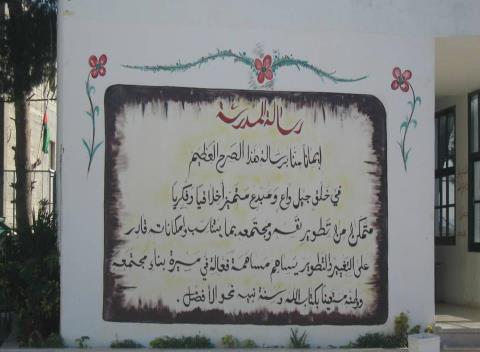 رسالة المدرسة
إيمانا منا برسالة هذا الصرح العظيم
في خلق جيل واع ومبدع متميز أخلاقيا وفكريا
متمكن من تطوير نفسه ومجتمعه بما يتناسب وإمكاناته قادر
على التغيير والتطوير يساهم مساهمة فعالة في مسيرة بناء مجتمعه
مستعينا بكتاب الله وسنة نبيه نحو الأفضل .